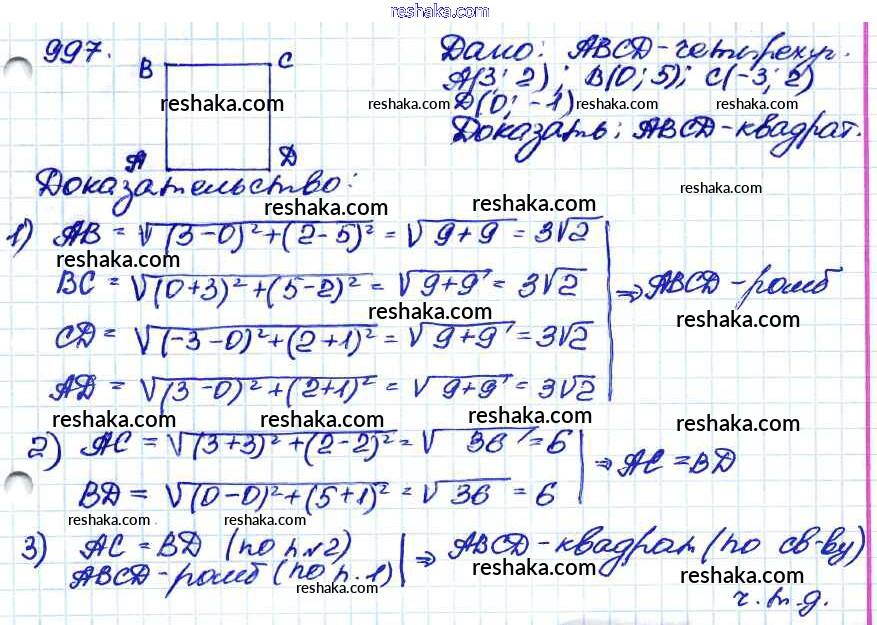 reshaka.com
997.
B C
Дано: ABCD-четырехуг.
A(3; 2); B(0; 5); C(-3; 2)
reshaka.com reshaka.com reshaka.com
D(0; -1)
A D
Доказать: ABCD-квадрат.
Доказательство:
reshaka.com reshaka.com
1) AB = √(3-0)²+(2-5)² = √9+9 = 3√2
reshaka.com
BC = √(0+3)²+(5-2)² = √9+9 = 3√2
⇒ ABCD-ромб
reshaka.com reshaka.com
CD = √(-3-0)²+(2+1)² = √9+9 = 3√2
AD = √(3-0)²+(2+1)² = √9+9 = 3√2
reshaka.com reshaka.com reshaka.com reshaka.com
2) AC = √(3+3)²+(2-2)² = √36 = 6
⇒ AC = BD
BD = √(0-0)²+(5+1)² = √36 = 6
reshaka.com reshaka.com reshaka.com
3) AC = BD (по п.2)
ABCD-ромб (по п.1)
⇒ ABCD-квадрат (по св-ву)
reshaka.com reshaka.com reshaka.com
ч.т.д.